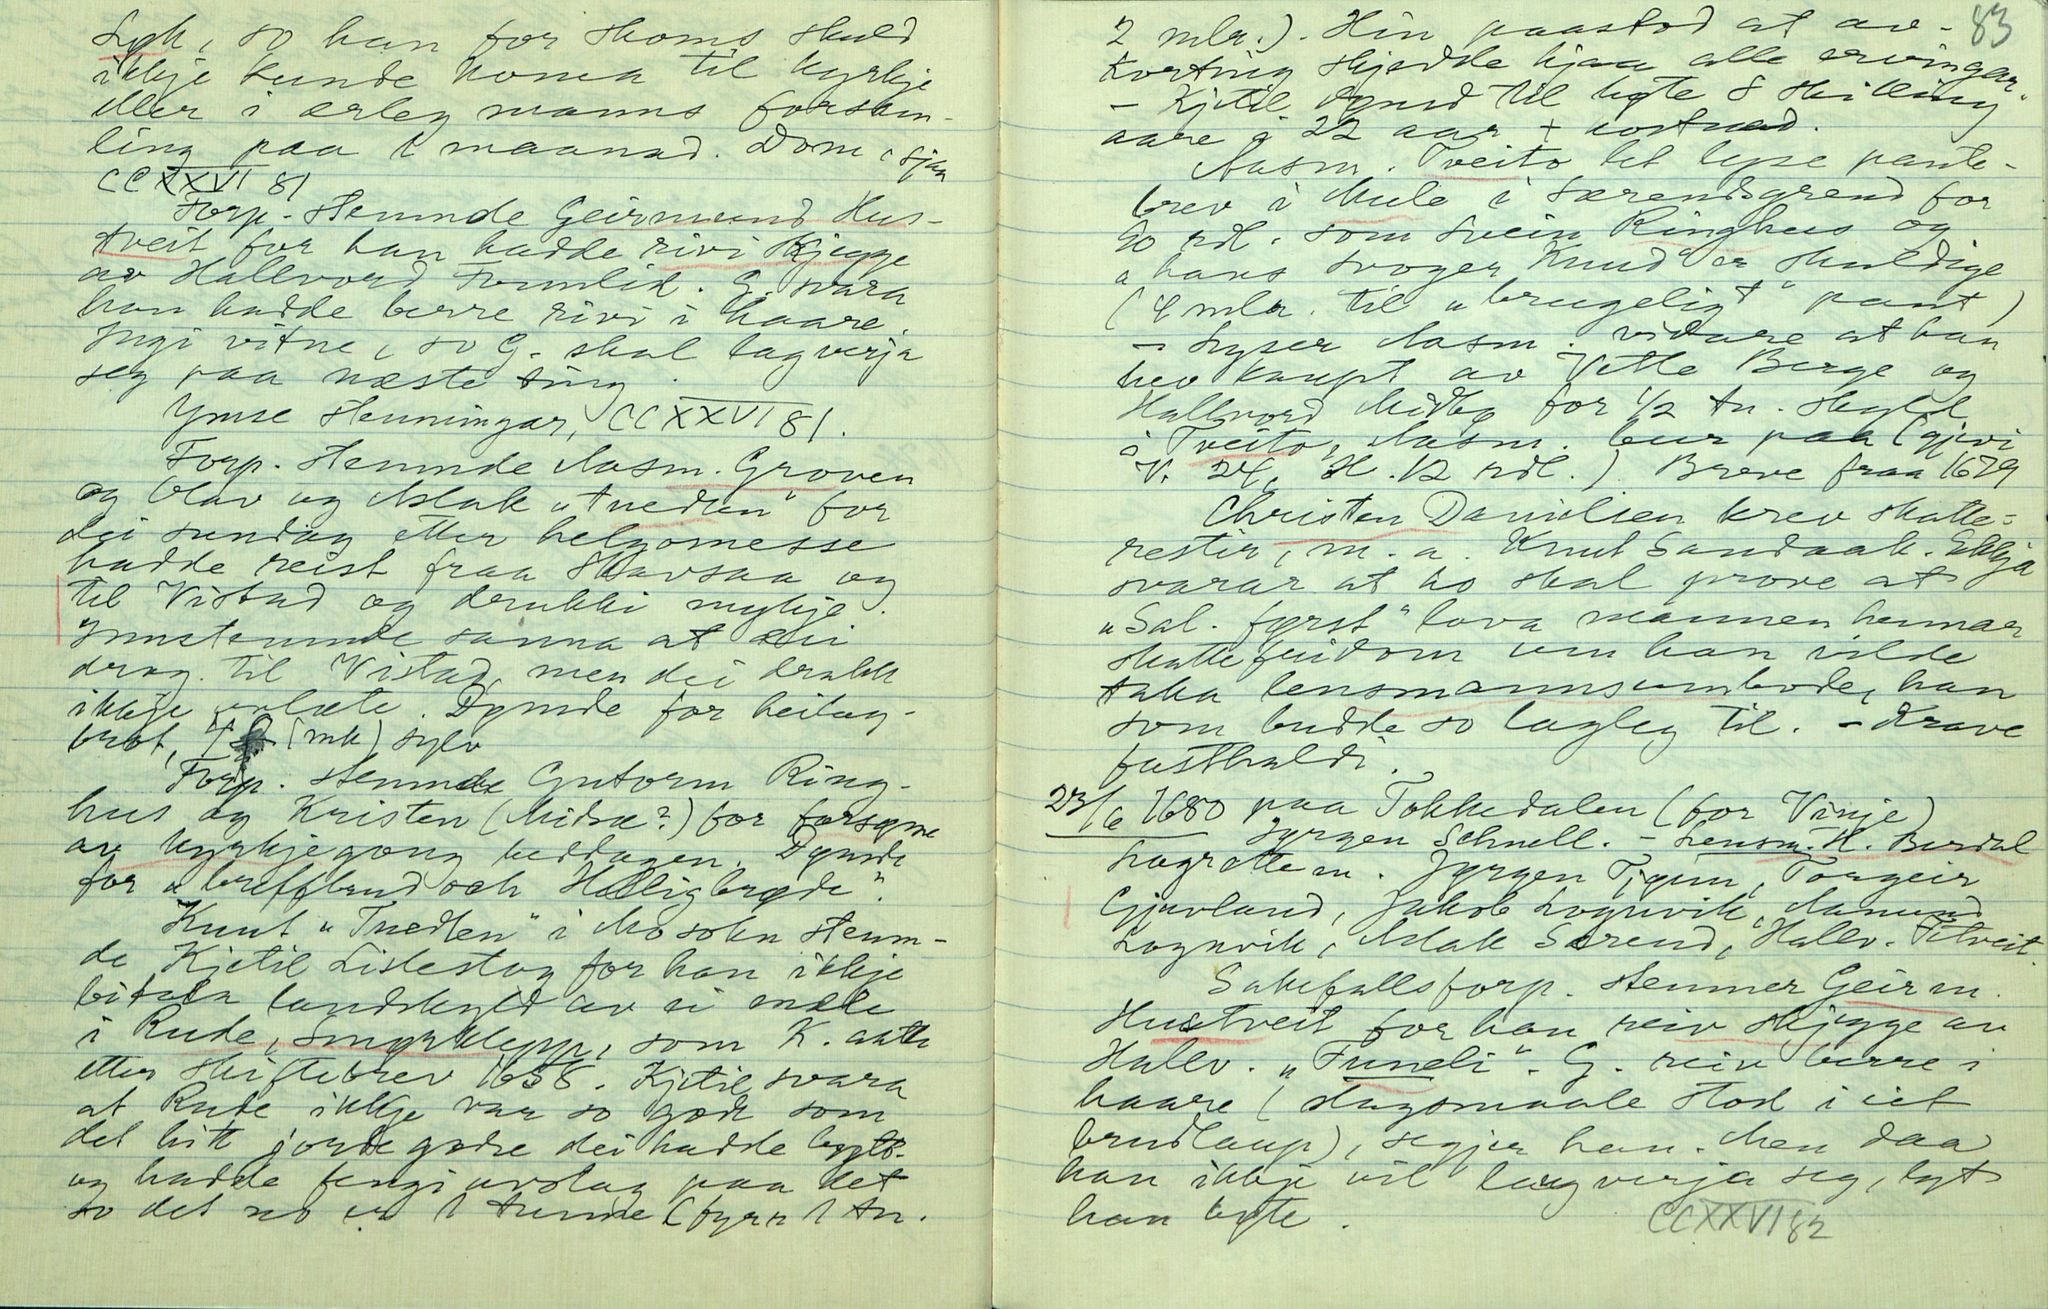 Lyk, so han for skoms skuld
ikkje kunde koma til kyrkje
eller i ærleg manns forsam-
ling paa 1 maanad. Dom, sjaa
CCXXVI 81
Forp. stemnde Geirmund Hus-
tveit for han hadde rivi skjegge
av Hallvord Trunlid. G. svara
han hadde berre rivi i haare.
Ingi vitne, so G. skal lagverja
seg paa næste ting.
Ymse stemningar, CCXXVI 81.
Forp. stemnde Aasm. Groven
og Olav og Aslak "tvedten" for
dei sundag etter helgomesse
hadde reist fraa Skavsaa og
til Vistad og drukki mykje.
Innstemnde sanna at dei
drog til Vistad, men dei drakk
ikkje. Dømde for heilag-
brot, (mk) sylv
Forp. stemnde Gutorm Ring-
hus og Kristen (Midsæ?) for forsøme
av kyrkjegong beddagen. Dømde
for "breffbrud och Helligbrøde".
Knut "Tvedten" i Mo sokn stemn-
de Kjetil Listestog for han ikkje
bitala landskyld av ei mæle
i Rude, smørklepp, som K. aatte
etter skiftebrev 1658. Kjetil svara
at Rude ikkje var so god som
det hitt jordegodse dei hadde bytt
og hadde fengi avslag paa det
so det no er 1 tunne (fyrr 1 tn.
83
2 mlr.). Hin paastod at av-
korting skjedde hjaa alle ervingar.
- Kjetil dømd til bøte 8 skilling
aare i 22 aar + kostnad.
Aasm. Tveito let lyse pante-
brev i Mule i Særensgrend for
90 rdl. som Svein Ringhus og
hans svoger Knud er skuldige
(4 mlr. til "brugeligt" pant)
- Lyser Aasm. vidare at han
hev kaupt av Vetle Berge og
Hallvord Midbø for 1/2 tn. skyld
i Tveito, Aasm. bur paa (gjevi
V. 24, H. 12 rdl.) Breve fraa 1679
Christen Danielsen krev skatte-
restir, m. a. Knut Sandaak. Ekkja
svarar at ho skal prove at
"Sal. fyrst" lova mannen hennar
skattefridom um han vilde
taka lensmannsumbode, han
som budde so lagleg til. - Krave
fasthaldi.
23/6 1680 paa Tokkedalen (for Vinje)
Jørgen Schnell. - Lensm. K. Berdal
Lagrettem. Jørgen Tjønn, Torgeir
Gjuvland, Jakob Lognvik, Aamund
Lognvik, Aslak Særend, Hallv. Tveit.
Sakefallsforp. stemner Geirm.
Hustveit for han reiv skjegge av
Hallv. "Trunli". G. reiv berre i
haare (slagsmaale stod i eit
brudlaup), segjer han. Men daa
han ikkje vil lagverja seg, lyt
han bøte.
CCXXVI 82